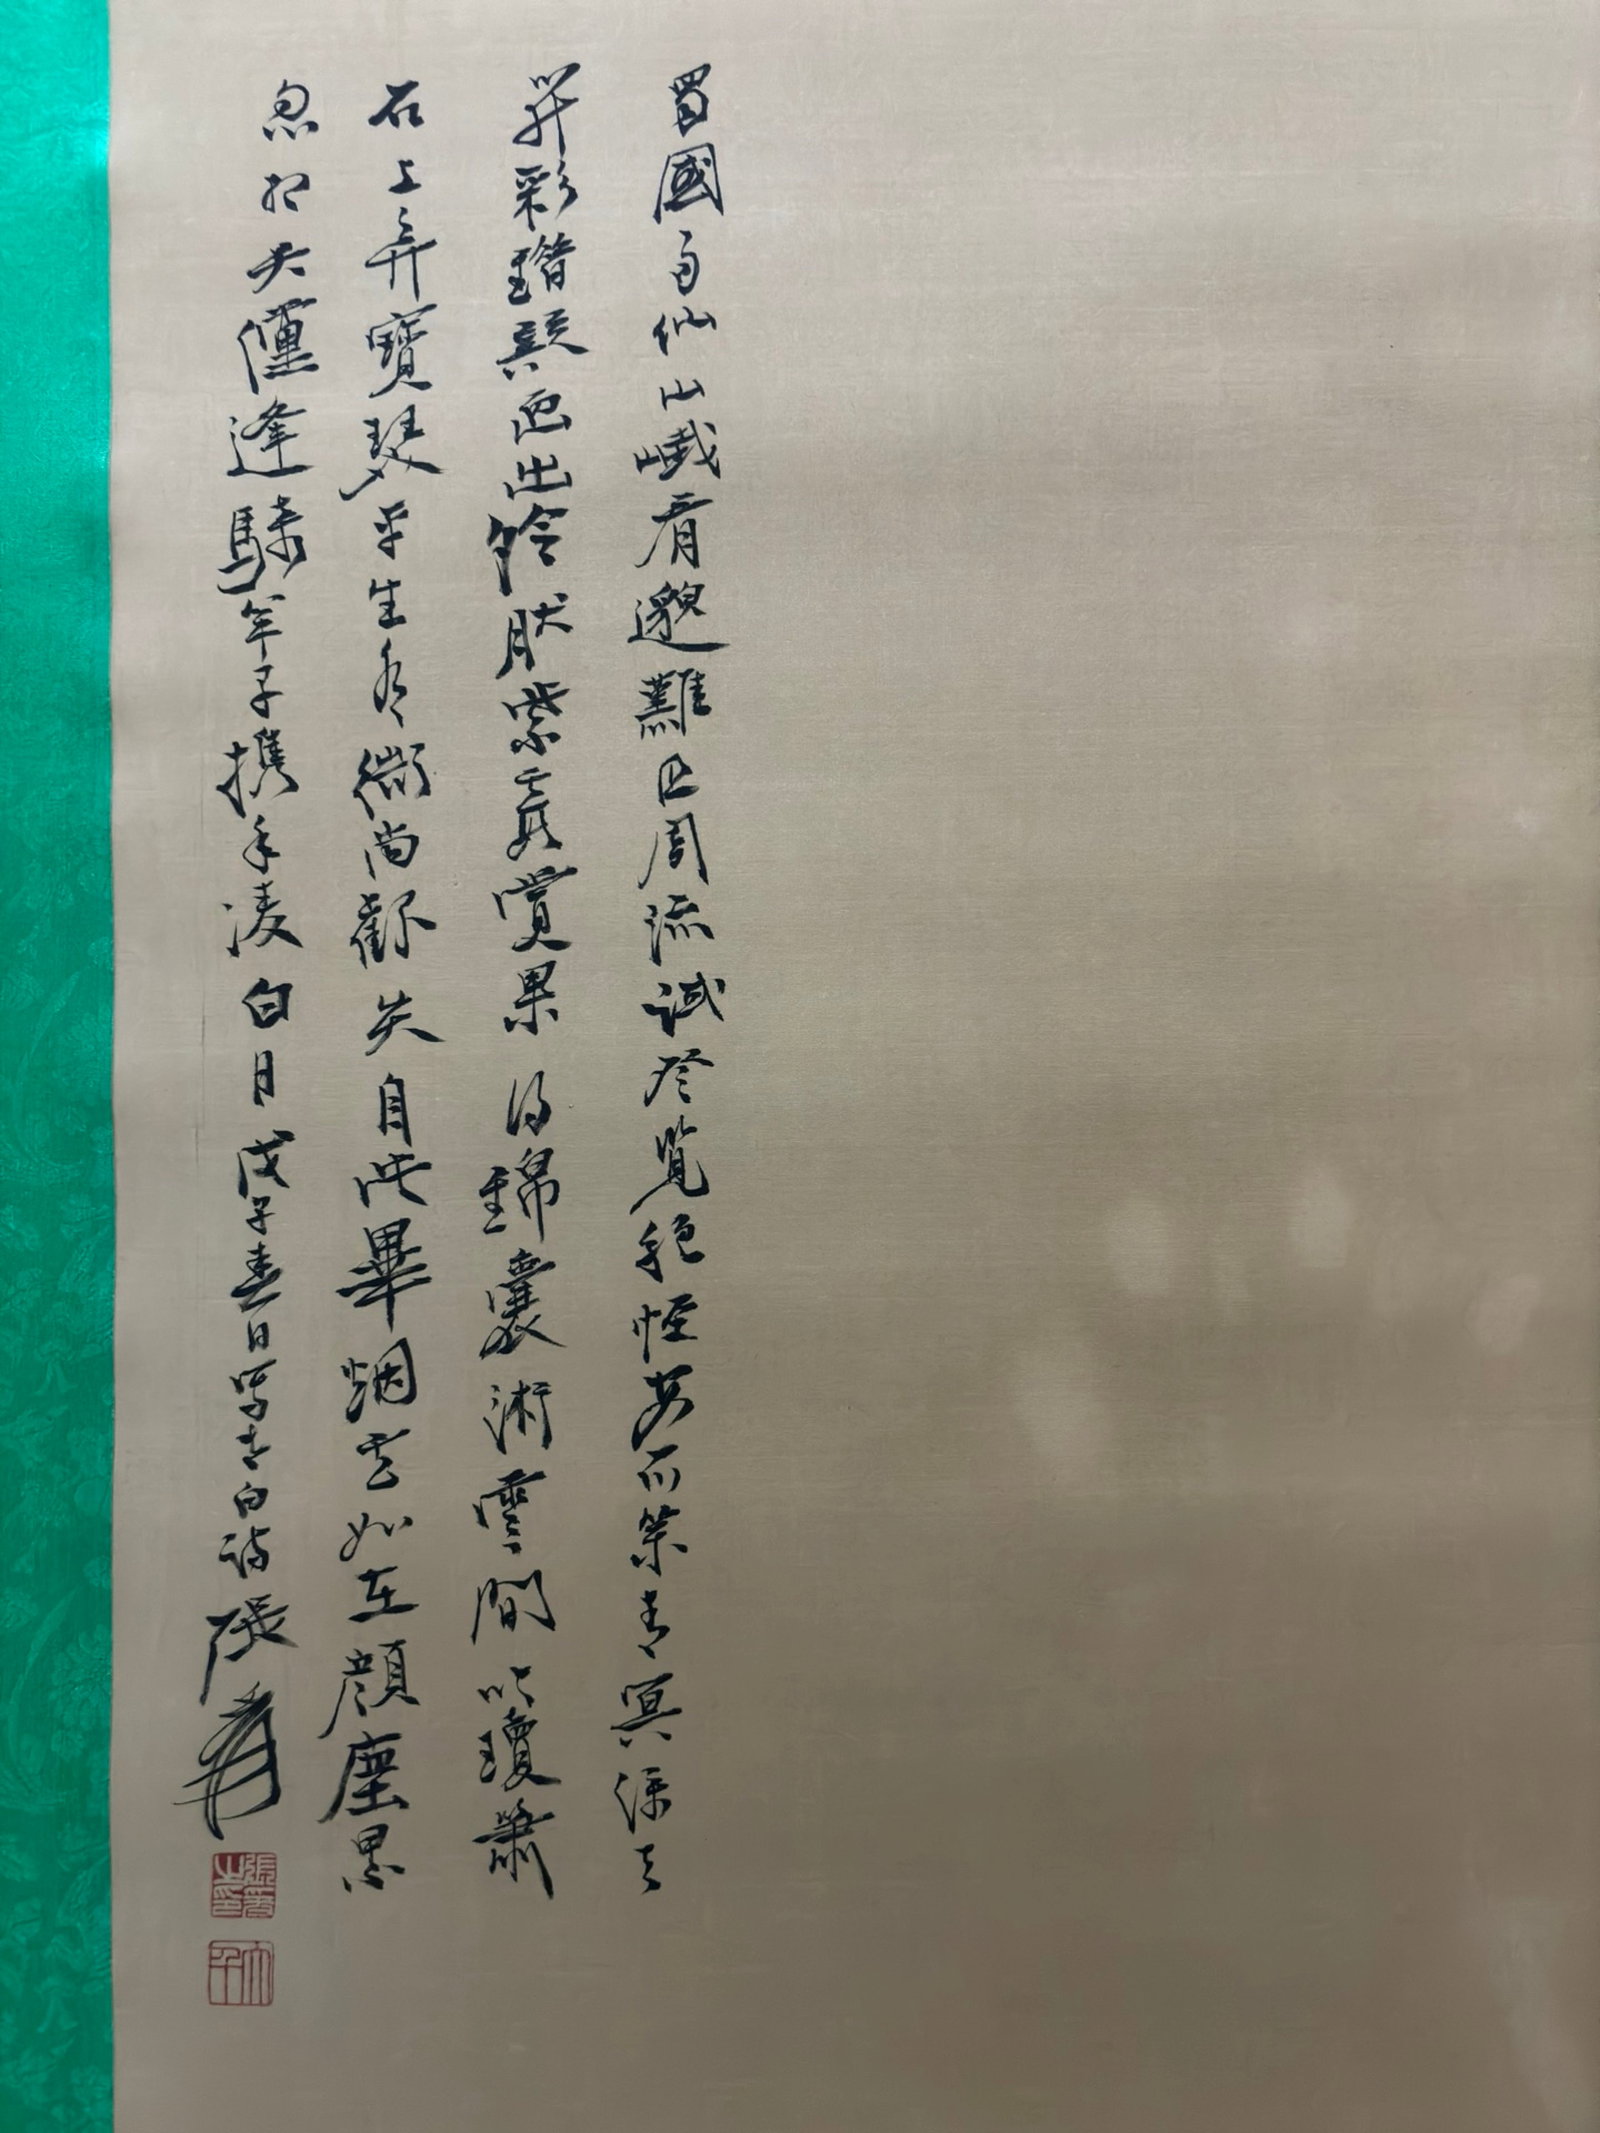 蜀國多仙山峨眉邈難匹周流試登覽絕怪安可悉青冥倚天
開彩錯疑畫出泠然紫霞賞果得錦囊術雲間吟瓊簫
石上弄寶瑟平生有微尚歡笑自此畢烟容如在顏塵累
忽相失儻逢騎羊子携手凌白日戊子春日寫李白詩張爰
張爰之印
大千